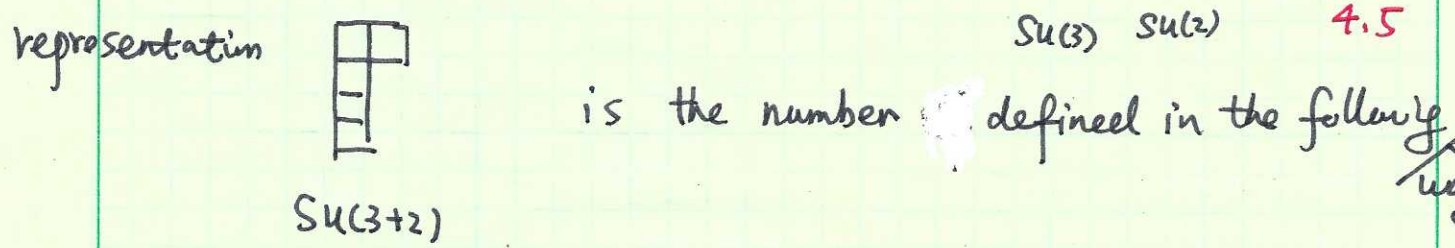 SU(3) SU(2) 4.5
representation
is the number defined in the following
SU(3+2)